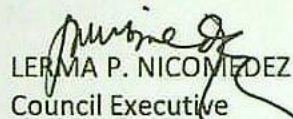 LERMA P. NICOMEDEZ
Council Executive